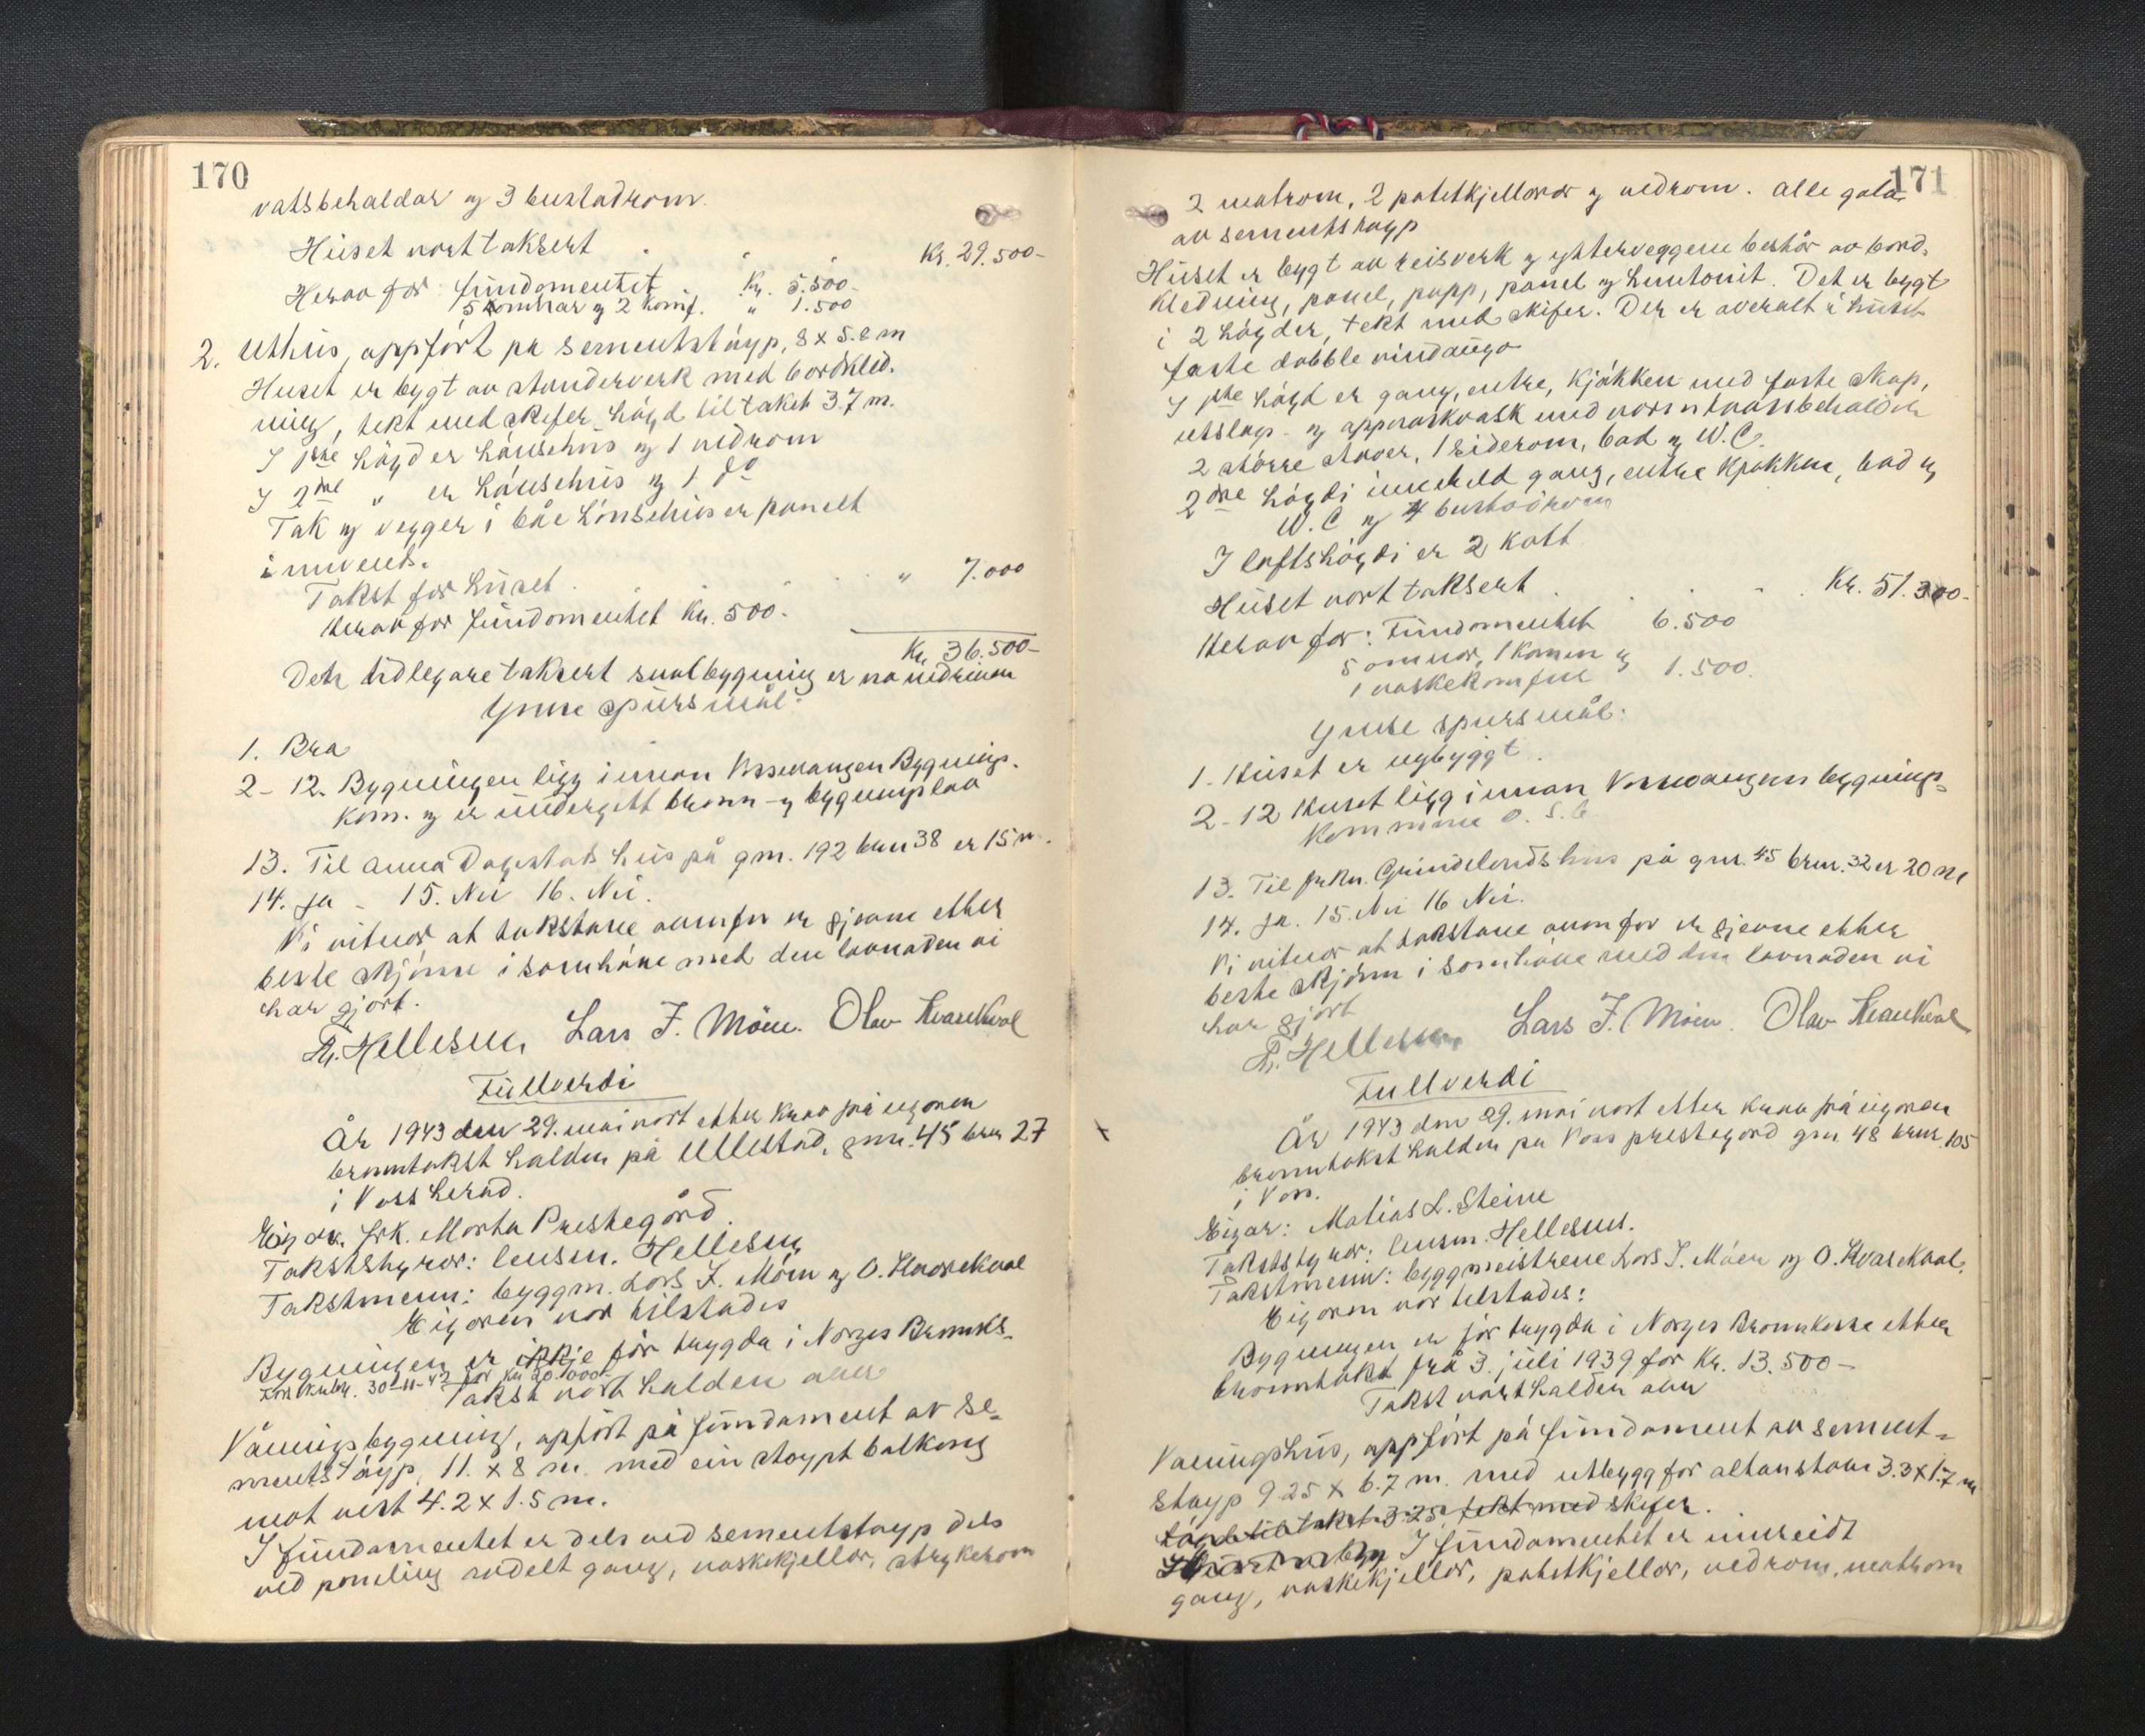 170
vatsbehaldar og 3 bustadrom.
Huset vart taksert Kr. 29.500-
Herav for fundamentet Kr. 5.500-
5 omnar og 2 komf. " 1.500
2. Uthus, oppført på sementstøyp, 8 x 5.8 m
Huset er bygt av standerverk med bordkled-
ning, tekt med skifer. Høgd til taket 3.7 m.
I 1ste høgd er hønsehus og 1 vedrom
I 2dre " er hønsehus og 1 do
Tak og vegger i båe hønsehus er panelt
innvends.
Takst for huset " 7.000
Herav for fundamentet Kr. 500-
Kr. 36.500-
Den tidlegare taksert svalbygning er no nedriven
Ymse spursmål:
1. Bra
2-12. Bygningen ligg innan Vossevangen Bygnings-
kom. og er undergitt brann- og bygningslov
13. Til Anna Dagestads hus på gnr. 192 bnr 38 er 15 m.
14. Ja - 15. Nei 16. Nei.
Vi vitnar at takstane ovanfor er gjevne etter
beste skjønn i samhøve med den lovnaden vi
har gjort.
Hellesnes Lars J. Møen. Olav Kvarekval
Fullverdi
År 1943 den 29. mai vart etter krav frå eigaren
branntakst halden på Ullestad, gnr. 45 bnr 27
i Voss herad.
Eigar. frk. Marta Prestegård.
Takststyrar: lensm. Hellesnes
Takstmenn: byggm. Lars J. Møen og O. Kvarekval
Eigaren var tilstades
Bygningen er ikkje før trygda i Norges Brannks-
30-11-42 for kr 20.000-
Takst vart halden over
Våningsbygning, oppført på fundament av se-
mentstøyp, 11. x 8 m. med ein støypt balkong
mot vest 4.2 x 1.5 m.
I fundamentet er dels ved sementstøyp dels
ved paneling avdelt gang, vaskekjellar, strykerom
171
2 matrom, 2 potetkjellarar og vedrom. Alle golv
av sementstøyp
Huset er bygt av reisverk og ytterveggene består av bord-
kledning, panel, papp, panel og huntonit. Det er bygt
i 2 høgder, tekt med skifer. Der er overalt i huset
faste dobble vindaugo
I 1ste høgd er gang, entre, kjøkken med faste skap,
utslags- og oppvaskvask med varmtvassbehaldar
2 større stover, 1 siderom, bad og W.C.
2dre høgdi inneheld gang, entre kjøkken, bad og
W.C og 4 bustadrom
I loftshøgdi er 2 kott
Huset vart taksert Kr. 51.300-
Herav for: Fundamentet 6.500
5 omnar, 1 komin og
1 vaskekomfur 1.500.
Ymse spursmål:
1. Huset er nybyggt.
2-12 Huset ligg innan Vossevangens bygnings-
kommune o. s. b
13. Til frkn. Grindelands hus på gnr. 45 bnr. 32 er 20 m
14. Ja. 15. Nei 16 Nei.
Vi vitnar at takstane ovanfor er gjevne etter
beste skjønn i samhøve med den lovnaden vi
har gjort
Hellesnes Lars J. Møen. Olav Kvarekval
Fullverdi
År 1943 den 29. mai vart etter krav frå eigaren
branntakst halden på Voss prestegard gnr 48 bnr. 105
i Voss.
Eigar: Matias L. Steine
Takststyrar: lensm. Hellesnes.
Takstmenn: byggmeistrene Lars J. Møen og O. Kvarekval.
Eigaren var tilstades:
Bygningen er før trygda i Norges Brannkasse etter
branntakst frå 3. juli 1939 for Kr. 13.500-
Takst vart halden over
Våningshus, oppført på fundament av sement-
støyp 9.25 x 6.7 m. med utbygg for altanstove 3.3 x 1.7 m
Høgde til taket 3.25, tekt med skifer.
Huset er byg I fundamentet er innreidt
gang, vaskekjellar, potetkjellar, vedrom, matrom